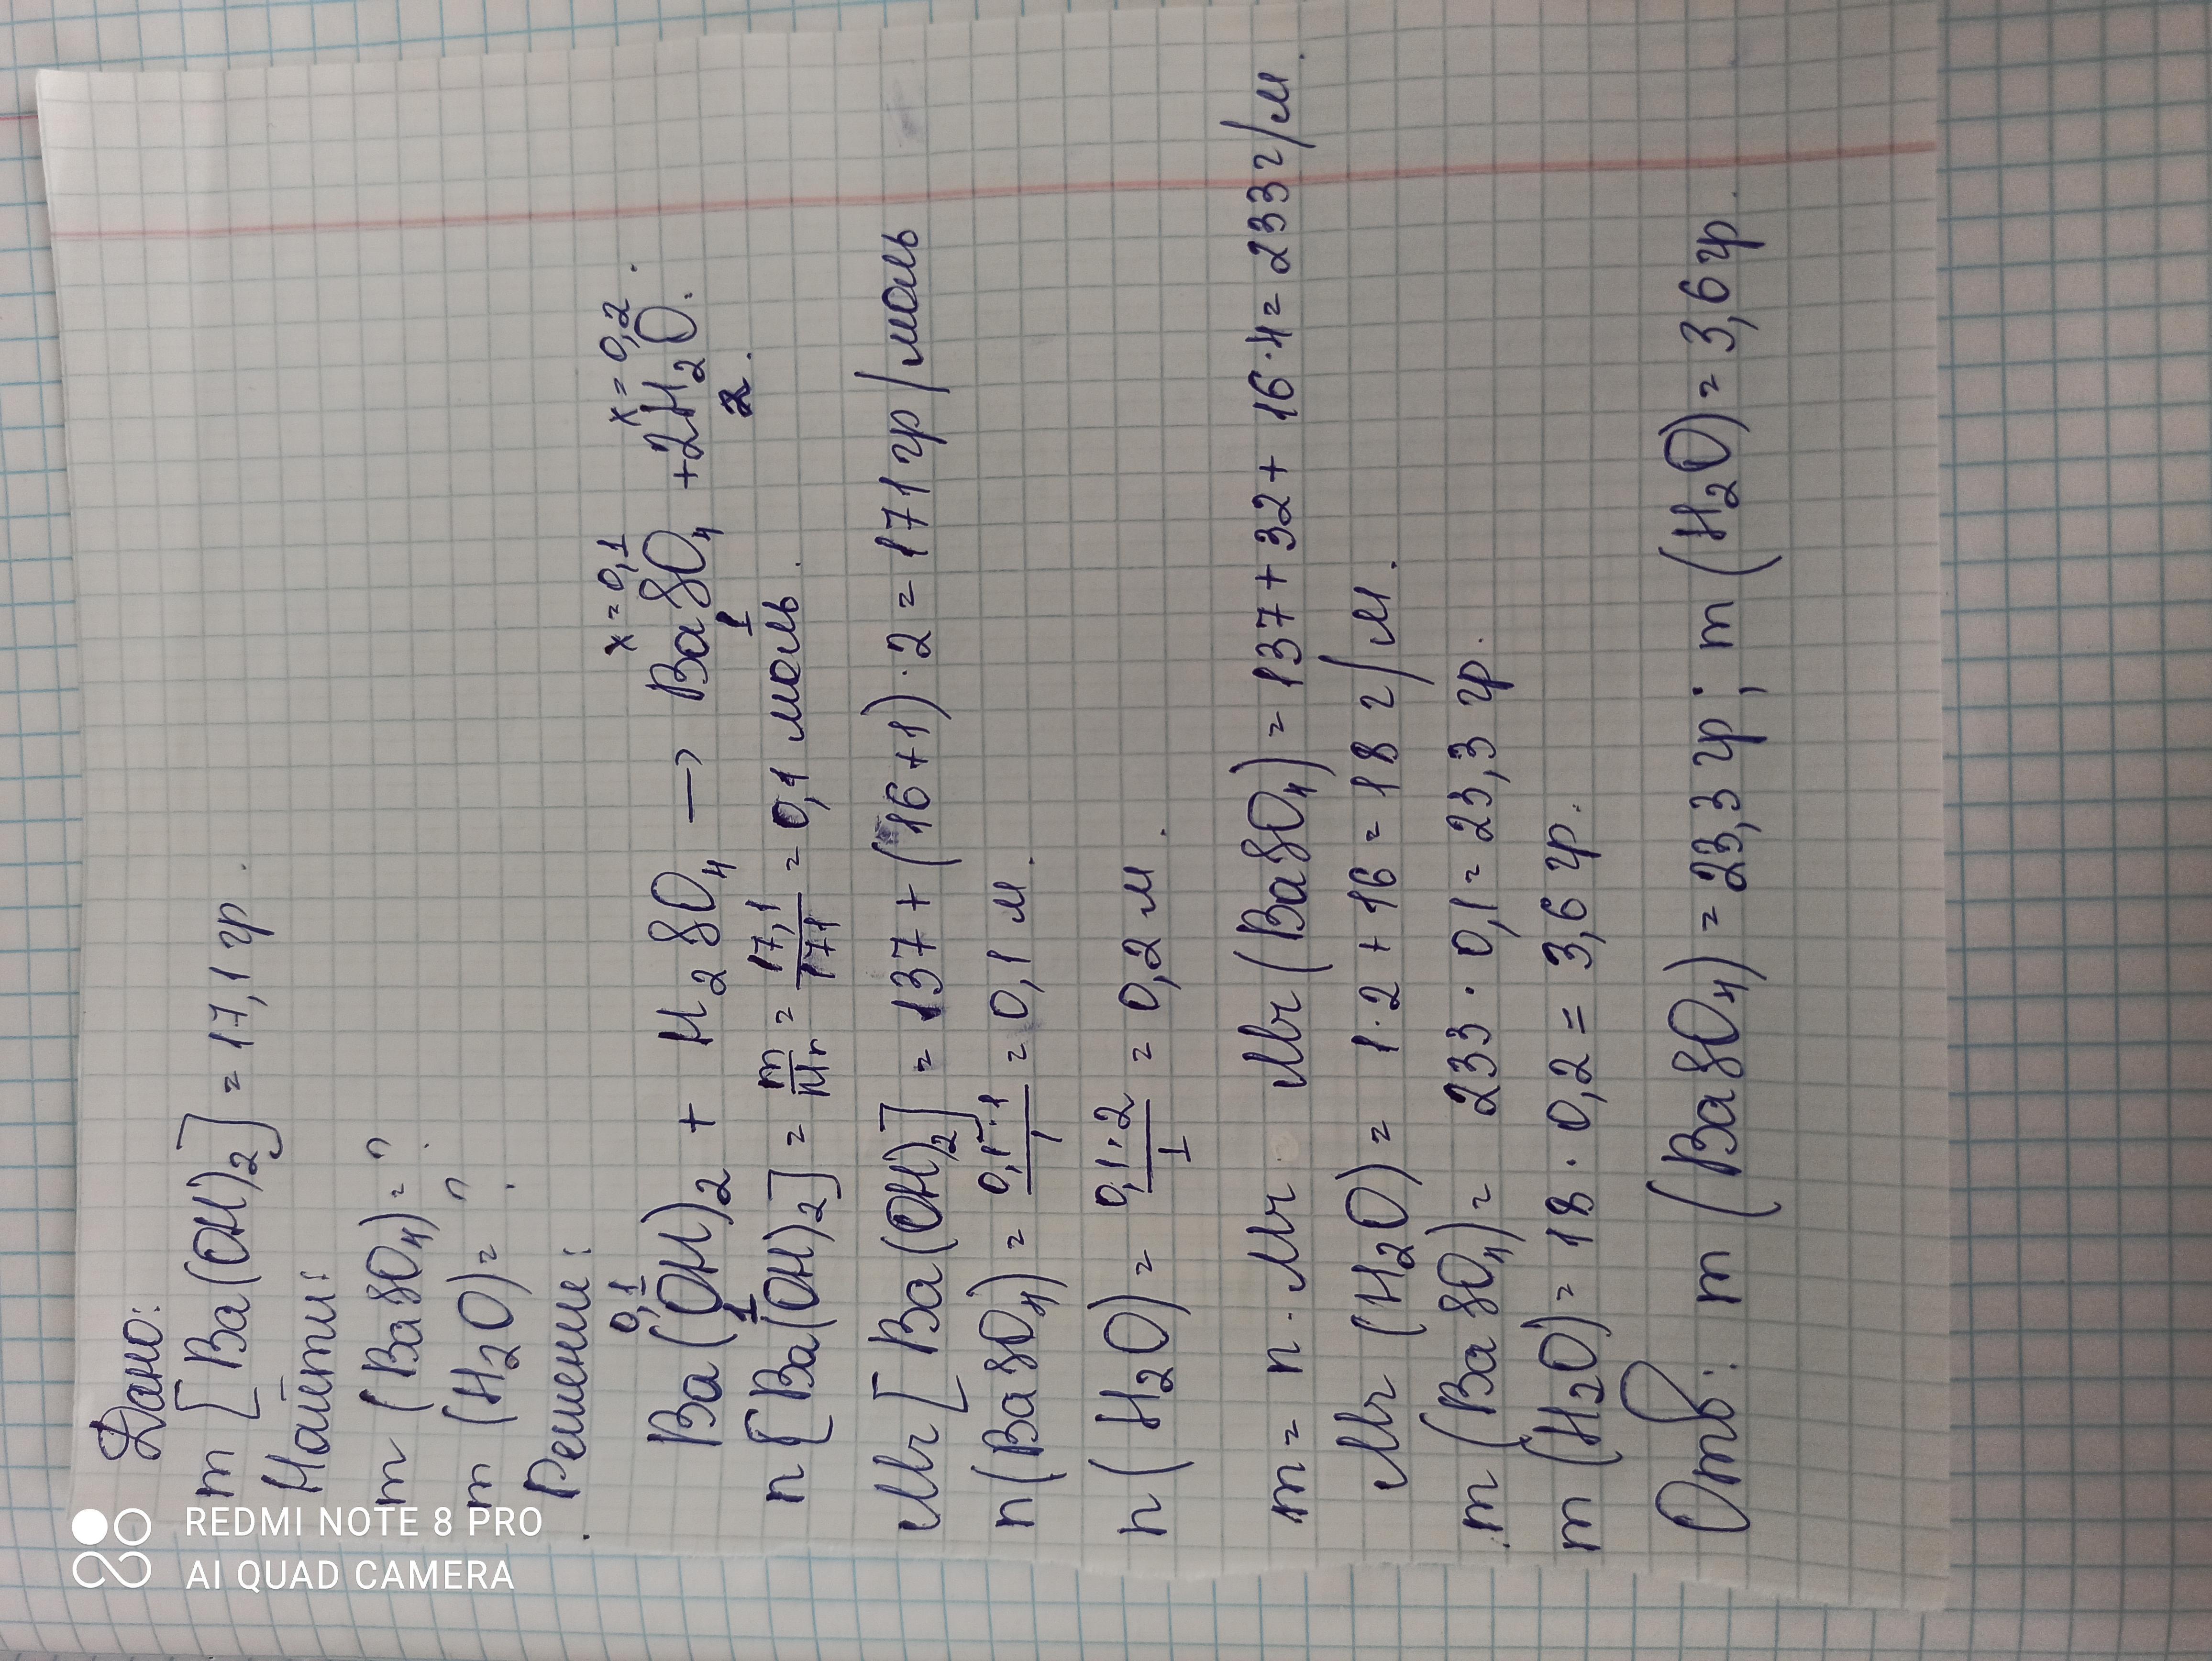 Дано:
m [Ba(OH)₂] = 17,1 гр.
Найти:
m (BaSO₄) = ?
m (H₂O) = ?
Решение:
0,1 x = 0,1 x = 0,2
Ba(OH)₂ + H₂SO₄ → BaSO₄ + 2H₂O.
1 1 2.
n [Ba(OH)₂] = m/Mr = 17,1/171 = 0,1 моль.
Mr [Ba(OH)₂] = 137 + (16+1)·2 = 171 гр/моль
n (BaSO₄) = 0,1·1/1 = 0,1 м.
n (H₂O) = 0,1·2/1 = 0,2 м.
m = n · Mr. Mr (BaSO₄) = 137 + 32 + 16·4 = 233 г/м.
Mr (H₂O) = 1·2 + 16 = 18 г/м.
m (BaSO₄) = 233 · 0,1 = 23,3 гр.
m (H₂O) = 18 · 0,2 = 3,6 гр.
Отв: m (BaSO₄) = 23,3 гр; m (H₂O) = 3,6 гр.
REDMI NOTE 8 PRO
AI QUAD CAMERA